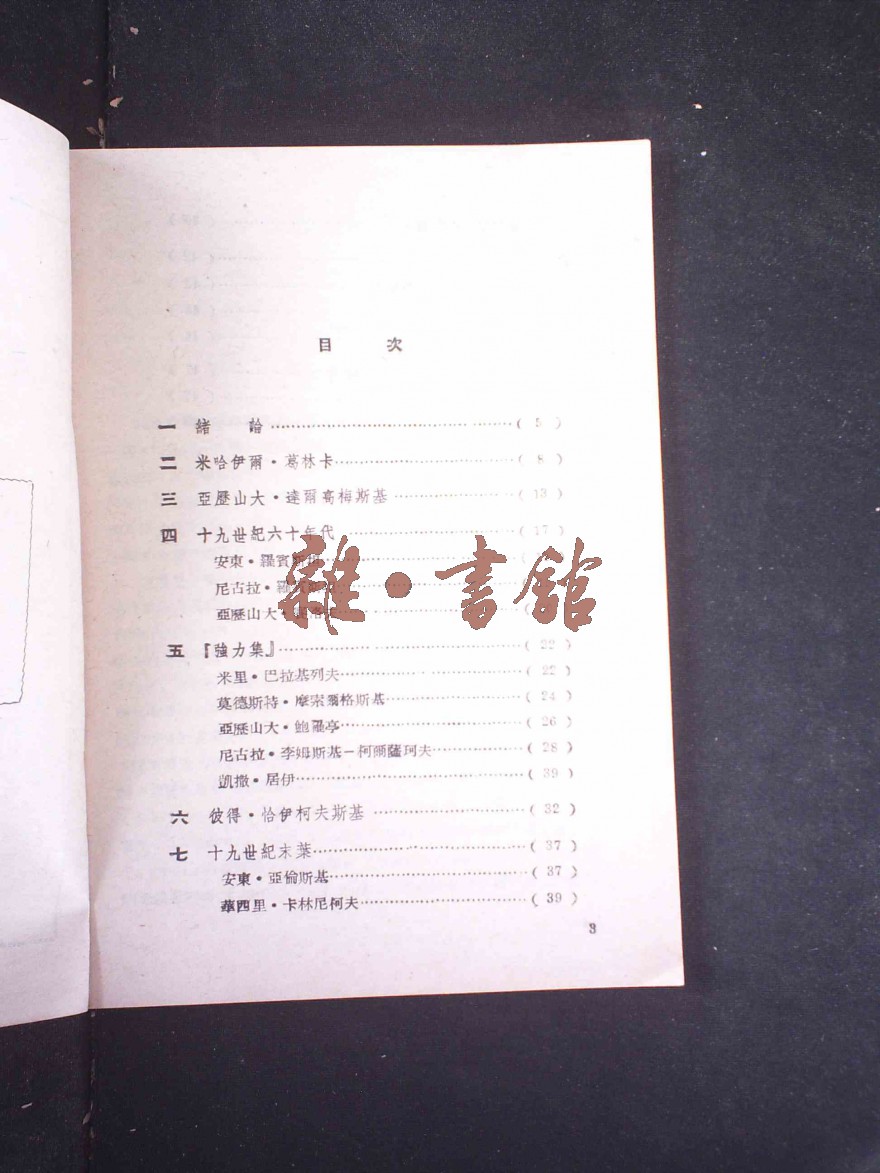 目 次
一 緒 論……………………………………(5)
二 米哈伊爾·葛林卡…………………………(8)
三 亞歷山大·達爾高梅斯基…………………(13)
四 十九世紀六十年代…………………………(17)
安東·羅賓斯坦
尼古拉·羅賓
亞歷山大·
五 『強力集』…………………………………(22)
米里·巴拉基列夫……………………………(22)
莫德斯特·摩索爾格斯基……………………(24)
亞歷山大·鮑羅亭……………………………(26)
尼古拉·李姆斯基—柯爾薩珂夫……………(28)
凱撒·居伊……………………………………(39)
六 彼得·恰伊柯夫斯基………………………(32)
七 十九世紀末葉………………………………(37)
安東·亞倫斯基………………………………(37)
華西里·卡林尼柯夫…………………………(39)
3
雜·書館